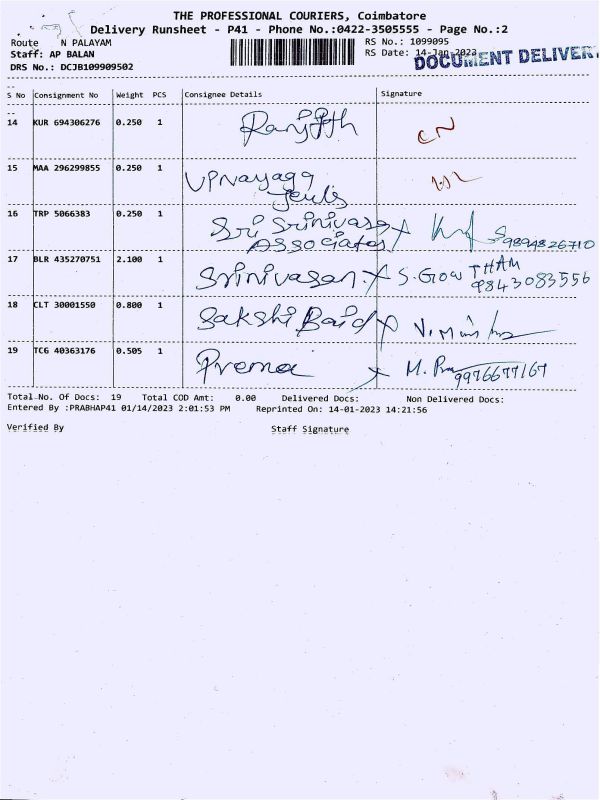 THE PROFESSIONAL COURIERS, Coimbatore
Delivery Runsheet - P41 - Phone No.:0422-3505555 - Page No.:2
Route N PALAYAM
RS No.: 1099095
Staff: AP BALAN
RS Date: 14-Jan-2023
DOCUMENT DELIVERY
DRS No.: DCJB109909502
S No Consignment No Weight PCS Consignee Details Signature
14 KUR 694306276 0.250 1 Ranjith CN
15 MAA 296299855 0.250 1
16 TRP 5066383 0.250 1 Sri Srinivasa
Associates 9894826710
17 BLR 435270751 2.100 1 Srinivasan X S. GOWTHAM
9843083556
18 CLT 30001550 0.800 1 Sakshi Baid X
19 TCG 40363176 0.505 1 Prema X M.
9976677167
Total No. Of Docs: 19 Total COD Amt: 0.00 Delivered Docs: Non Delivered Docs:
Entered By :PRABHAP41 01/14/2023 2:01:53 PM Reprinted On: 14-01-2023 14:21:56
Verified By Staff Signature